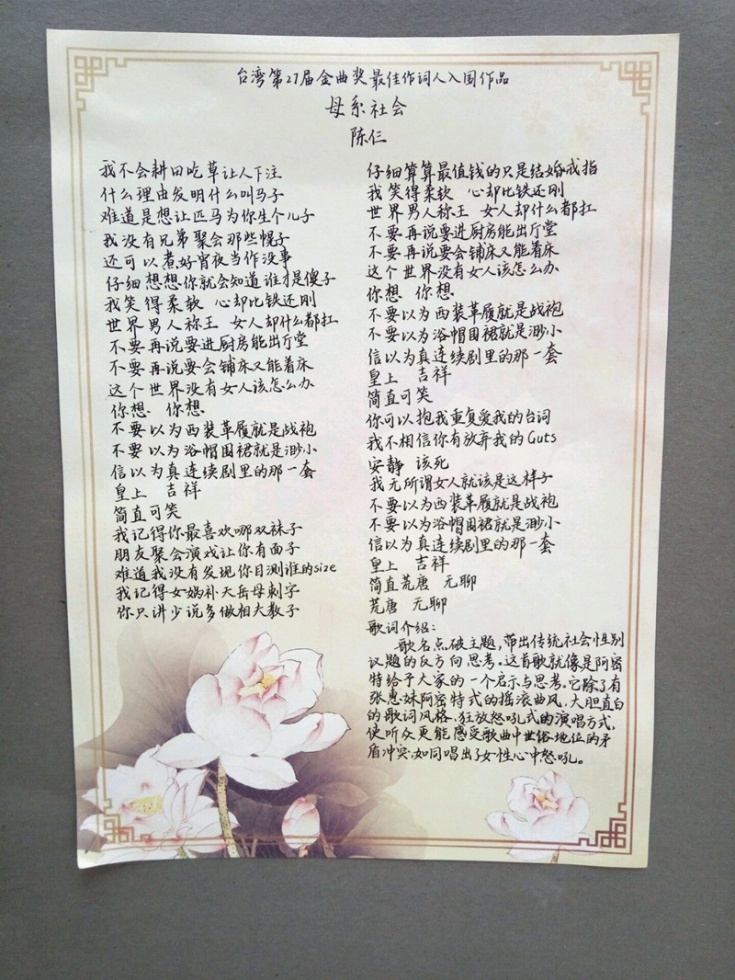 台湾第27届金曲奖最佳作词人入围作品
母系社会
陈仨
我不会耕田吃草让人下注
什么理由发明什么叫马子
难道是想让匹马为你生个儿子
我没有兄弟聚会那些幌子
还可以煮好宵夜当作没事
仔细想想你就会知道谁才是傻子
我笑得柔软 心却比铁还刚
世界男人称王 女人却什么都扛
不要再说要进厨房能出厅堂
不要再说要会铺床又能着床
这个世界没有女人该怎么办
你想 你想
不要以为西装革履就是战袍
不要以为浴帽围裙就是渺小
信以为真连续剧里的那一套
皇上 吉祥
简直可笑
我记得你最喜欢哪双袜子
朋友聚会演戏让你有面子
难道我没有发现你目测谁的size
我记得女娲补天岳母刺字
你只讲少说多做相夫教子
仔细算算最值钱的只是结婚戒指
我笑得柔软 心却比铁还刚
世界男人称王 女人却什么都扛
不要再说要进厨房能出厅堂
不要再说要会铺床又能着床
这个世界没有女人该怎么办
你想 你想
不要以为西装革履就是战袍
不要以为浴帽围裙就是渺小
信以为真连续剧里的那一套
皇上 吉祥
简直可笑
你可以抱我重复爱我的台词
我不相信你有放弃我的Guts
安静 该死
我无所谓女人就该是这样子
不要以为西装革履就是战袍
不要以为浴帽围裙就是渺小
信以为真连续剧里的那一套
皇上 吉祥
简直荒唐 无聊
荒唐 无聊
歌词介绍:
歌名点破主题,带出传统社会性别
议题的反方向思考。这首歌就像是阿密
特给予大家的一个启示与思考。它除了有
张惠妹阿密特式的摇滚曲风,大胆直白
的歌词风格,狂放怒吼式的演唱方式,
使听众更能感受歌曲中世俗地位的矛
盾冲突,如同唱出了女性心中怒吼。